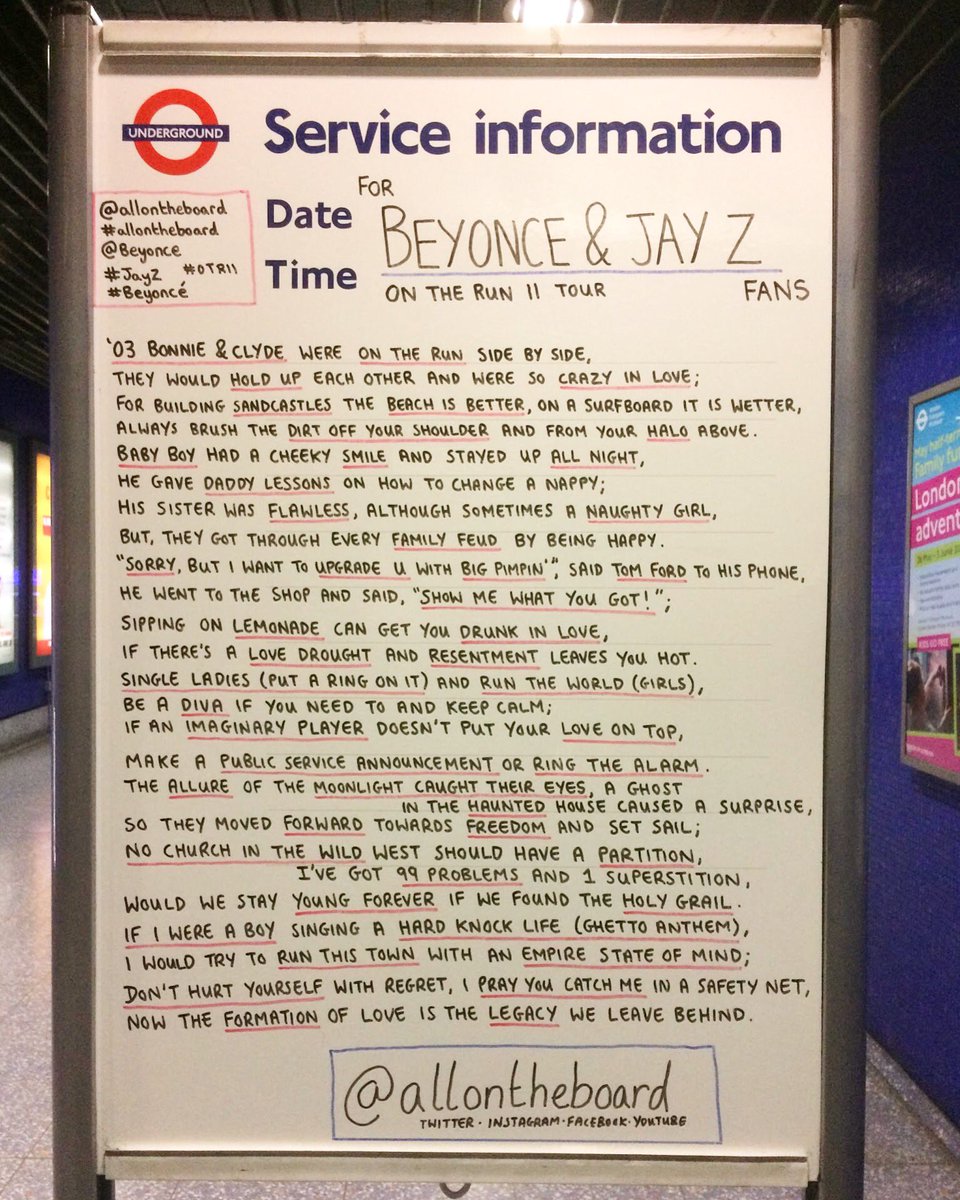 UNDERGROUND
Service information
@allontheboard
#allontheboard
@Beyonce
#JayZ #OTRII
#Beyoncé
Date
Time
FOR
BEYONCE & JAY Z
ON THE RUN II TOUR FANS
'03 BONNIE & CLYDE WERE ON THE RUN SIDE BY SIDE,
THEY WOULD HOLD UP EACH OTHER AND WERE SO CRAZY IN LOVE;
FOR BUILDING SANDCASTLES THE BEACH IS BETTER, ON A SURFBOARD IT IS WETTER,
ALWAYS BRUSH THE DIRT OFF YOUR SHOULDER AND FROM YOUR HALO ABOVE.
BABY BOY HAD A CHEEKY SMILE AND STAYED UP ALL NIGHT,
HE GAVE DADDY LESSONS ON HOW TO CHANGE A NAPPY;
HIS SISTER WAS FLAWLESS, ALTHOUGH SOMETIMES A NAUGHTY GIRL,
BUT, THEY GOT THROUGH EVERY FAMILY FEUD BY BEING HAPPY.
"SORRY, BUT I WANT TO UPGRADE U WITH BIG PIMPIN'", SAID TOM FORD TO HIS PHONE,
HE WENT TO THE SHOP AND SAID, "SHOW ME WHAT YOU GOT!";
SIPPING ON LEMONADE CAN GET YOU DRUNK IN LOVE,
IF THERE'S A LOVE DROUGHT AND RESENTMENT LEAVES YOU HOT.
SINGLE LADIES (PUT A RING ON IT) AND RUN THE WORLD (GIRLS),
BE A DIVA IF YOU NEED TO AND KEEP CALM;
IF AN IMAGINARY PLAYER DOESN'T PUT YOUR LOVE ON TOP,
MAKE A PUBLIC SERVICE ANNOUNCEMENT OR RING THE ALARM.
THE ALLURE OF THE MOONLIGHT CAUGHT THEIR EYES, A GHOST
IN THE HAUNTED HOUSE CAUSED A SURPRISE,
SO THEY MOVED FORWARD TOWARDS FREEDOM AND SET SAIL;
NO CHURCH IN THE WILD WEST SHOULD HAVE A PARTITION,
I'VE GOT 99 PROBLEMS AND 1 SUPERSTITION,
WOULD WE STAY YOUNG FOREVER IF WE FOUND THE HOLY GRAIL.
IF I WERE A BOY SINGING A HARD KNOCK LIFE (GHETTO ANTHEM),
I WOULD TRY TO RUN THIS TOWN WITH AN EMPIRE STATE OF MIND;
DON'T HURT YOURSELF WITH REGRET, I PRAY YOU CATCH ME IN A SAFETY NET,
NOW THE FORMATION OF LOVE IS THE LEGACY WE LEAVE BEHIND.
@allontheboard
TWITTER · INSTAGRAM · FACEBOOK · YOUTUBE
May half-term
Family fu
London
advent
KIDS GO FREE